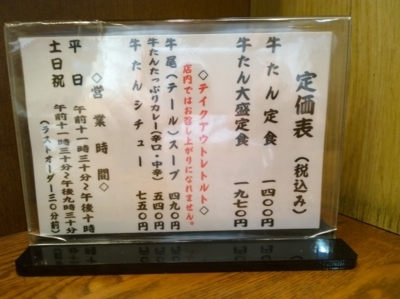 定価表（税込み）
牛たん定食 一四〇〇円
牛たん大盛定食 一九七〇円
◇テイクアウトレトルト◇
店内ではお召し上がりになれません。
牛尾（テール）スープ 四九〇円
牛たんたっぷりカレー（辛口・中辛） 五四〇円
牛たんシチュー 七五〇円
◇営業時間◇
平日 午前十一時三十分～午後十時
土日祝 午前十一時三十分～午後九時三十分
（ラストオーダー三〇分前）